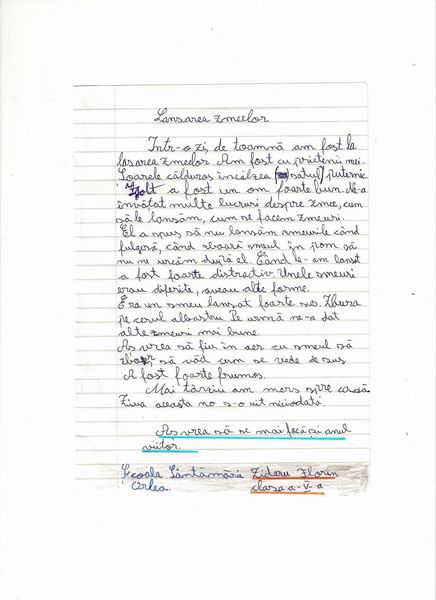 Lansarea zmeelor
Într-o zi, de toamnă am fost la
lasarea zmeelor. Am fost cu prietenii mei.
Soarele călduros încălzea satul puternic.
Zolt a fost un om foarte bun. Ne-a
învățat multe lucruri despre zmee, cum
să le lansăm, cum se facem zmeuri.
El a spus să nu lansăm zmeurile când
fulgeră, când zboară smeul în pom să
nu ne urcăm după el. Când le-am lansat
a fost foarte distractiv. Unele smeuri
erau diferite, aveau alte forme.
Era un smeu lansat foarte sus. Zbura
pe cerul albastru. Pe urmă ne-a dat
alte zmeuri mai bune.
Aș vrea să fiu în aer cu smeul să
zbor să văd cum se vede de sus.
A fost foarte frumos.
Mai târziu am mers spre casă.
Ziua aceasta no s-o uit niciodată.
Aș vrea să se mai facă și anul
viitor.
Școala Sântămării Zidaru Florin
Orlea. clasa a-V-a